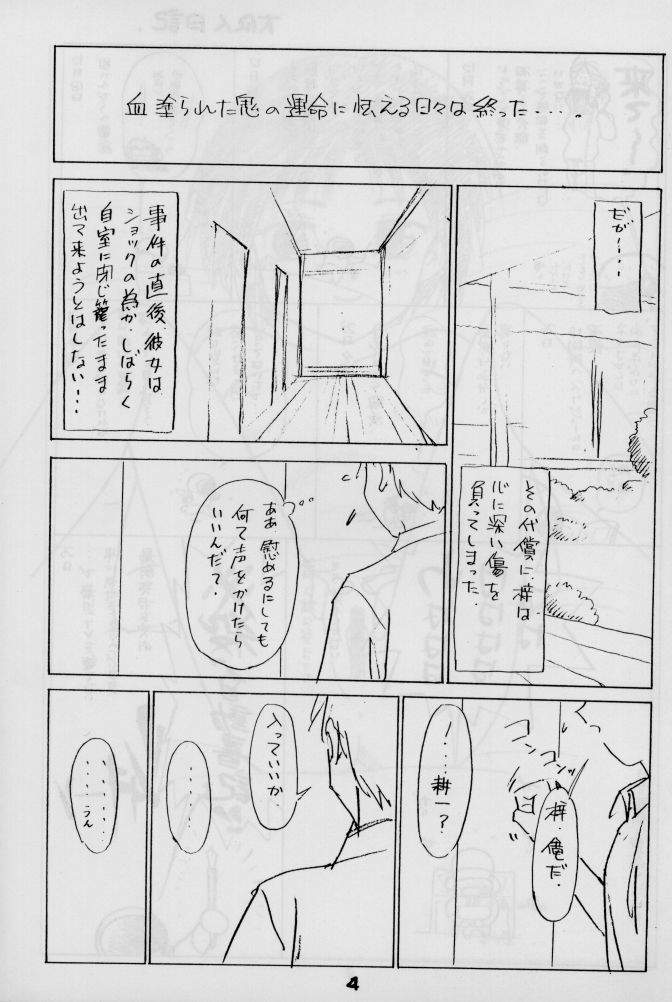 血塗られた鬼の運命に怯える日々は終った・・・。
だが・・・・
その代償に、梓は
心に深い傷を
負ってしまった。
事件の直後、彼女は
ショックの為か、しばらく
自室に閉じ籠ったまま
出て来ようとはしない・・・
ああ 慰めるにしても
何て声をかけたら
いいんだて・
コンコンッ
梓、俺だ。
・・・・耕一？
入っていいか。
・・・・
・・・・・
・・・・うん
4